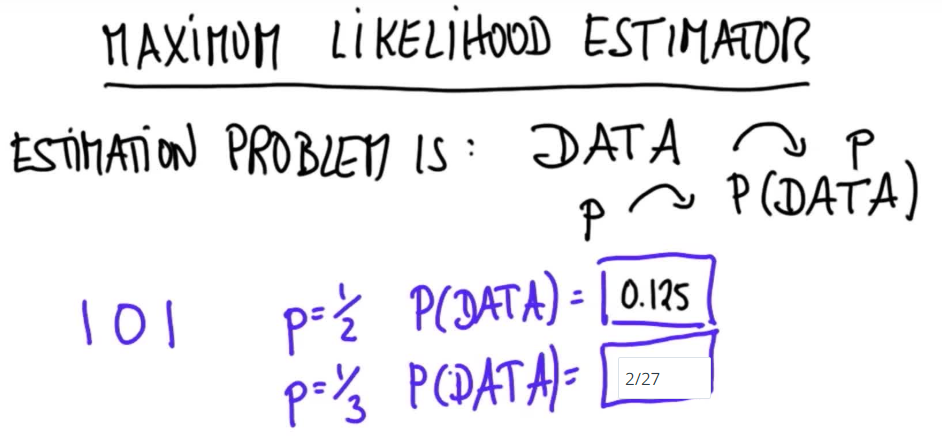 MAXIMUM LIKELIHOOD ESTIMATOR
ESTIMATION PROBLEM IS: DATA ↷ P
P ↷ P(DATA)
101 p=1/2 P(DATA)= 0.125
p=1/3 P(DATA)= 2/27